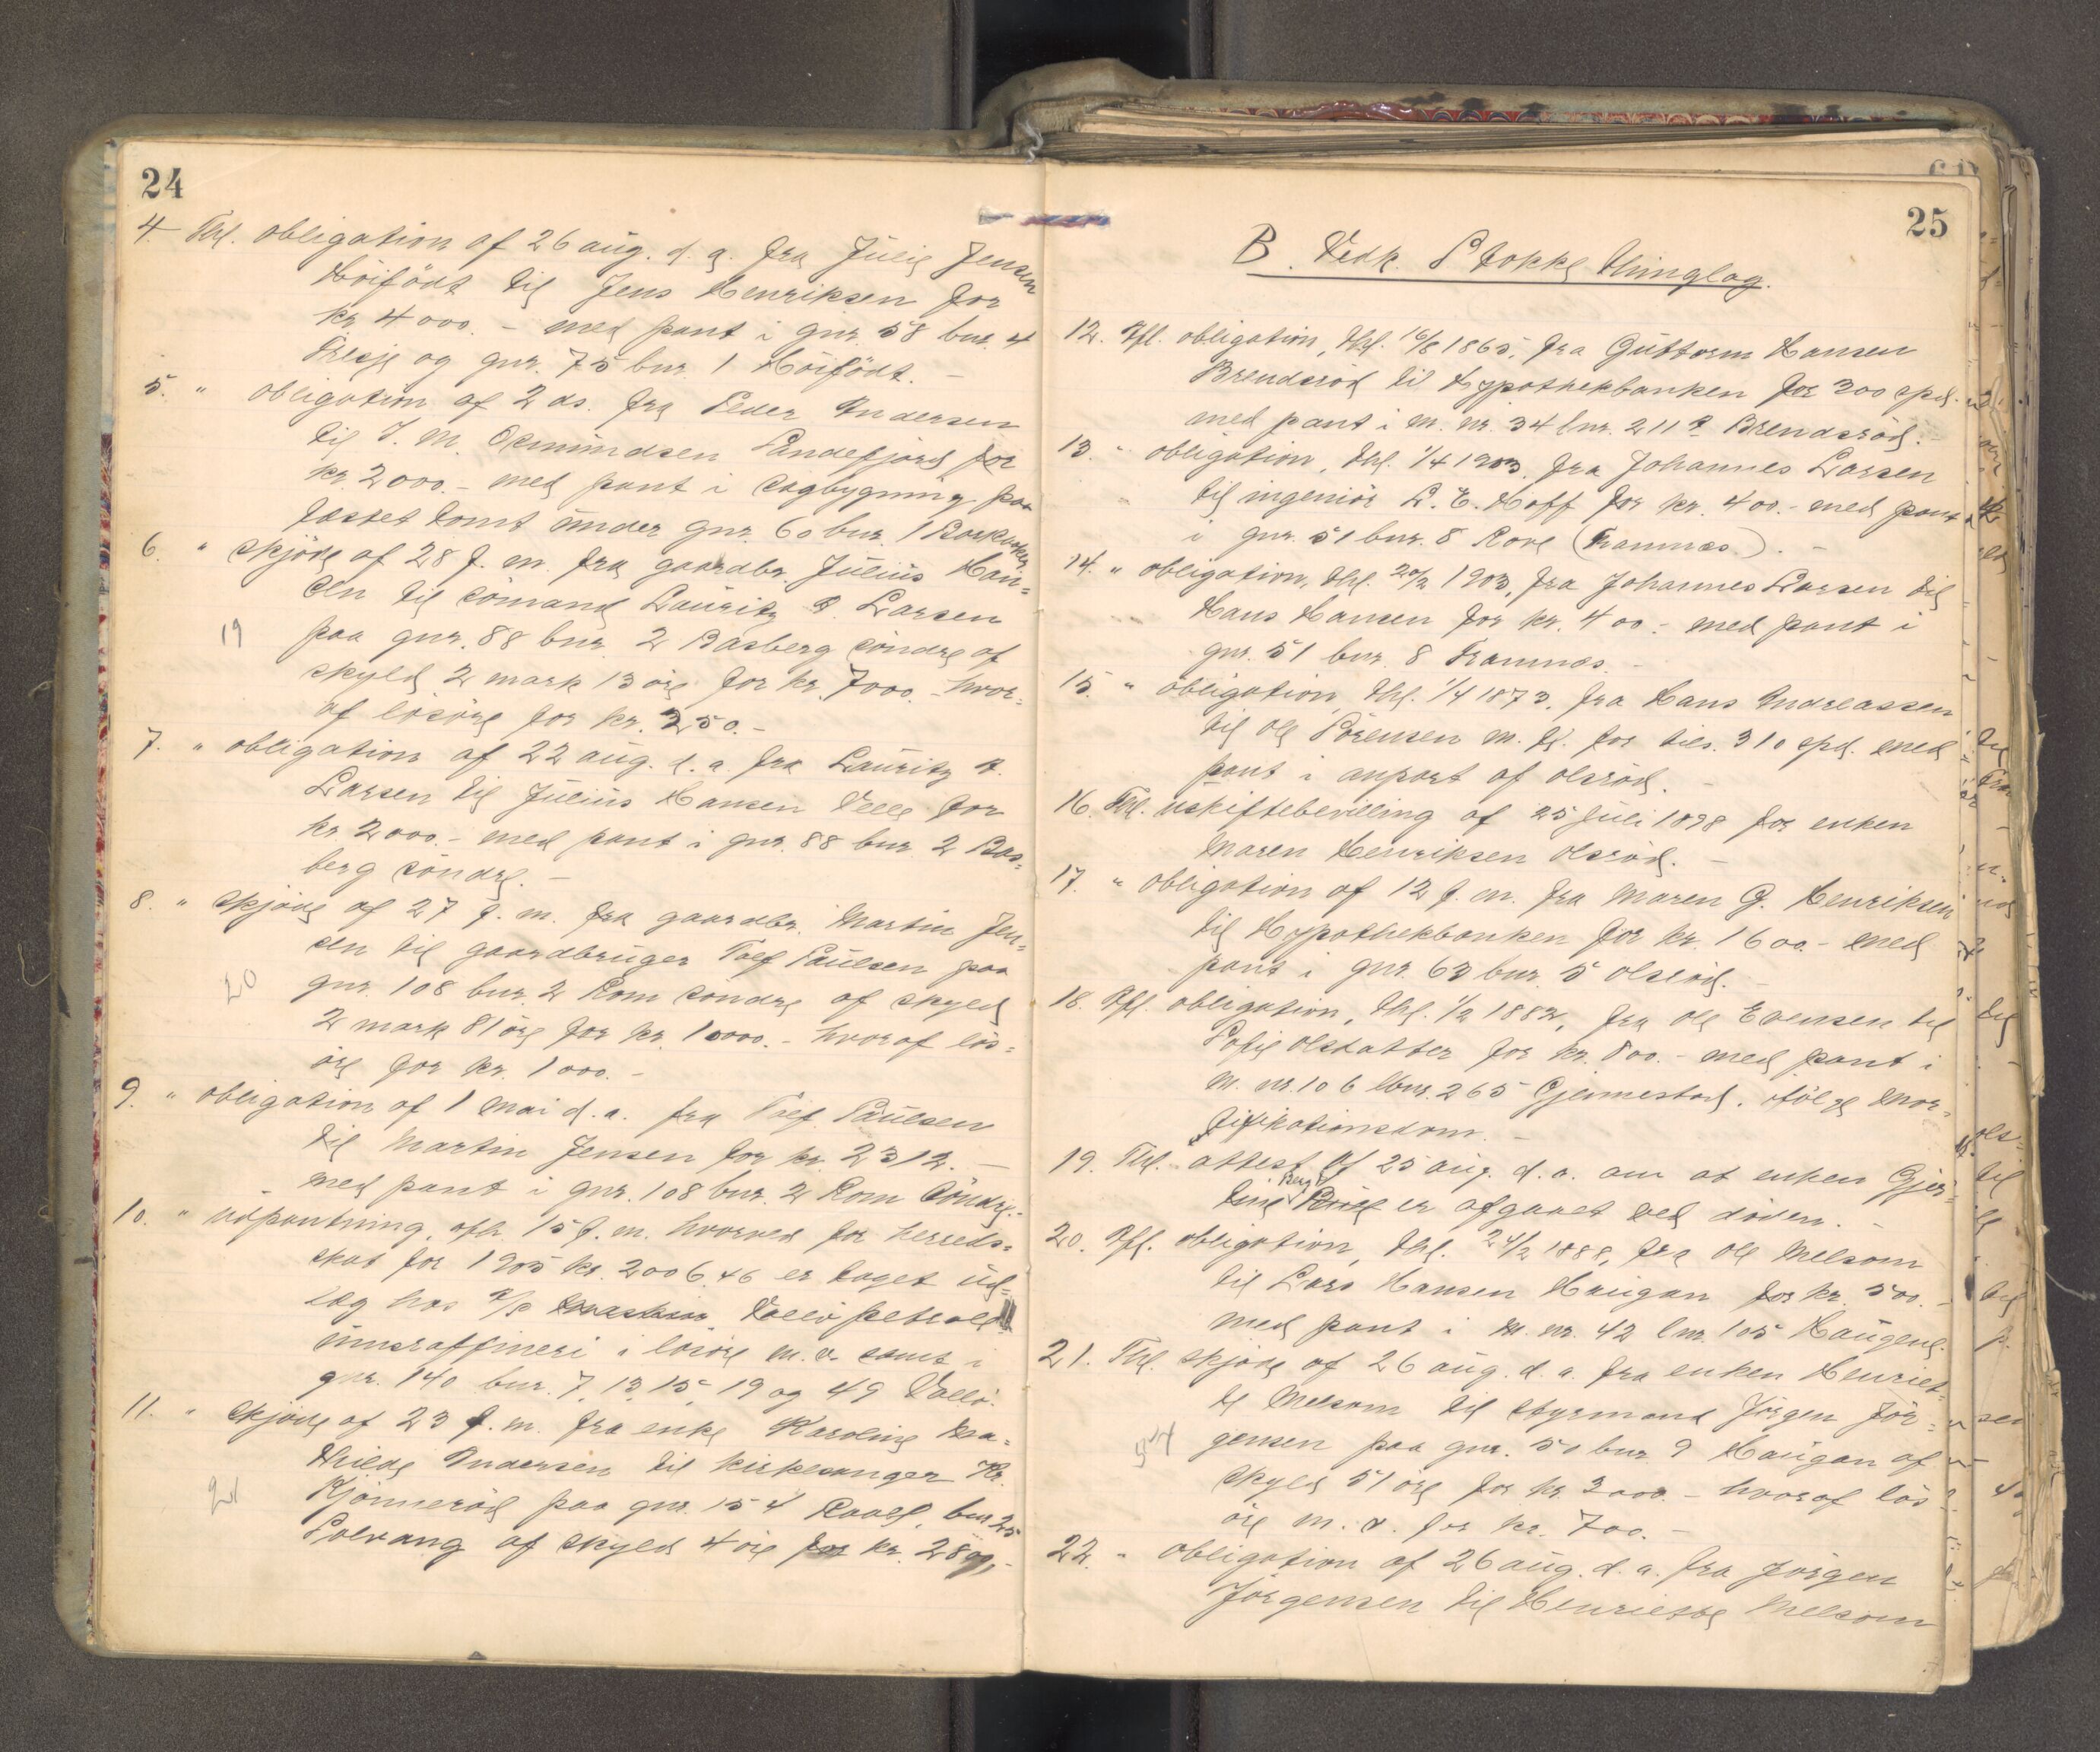 24
4. Thl. obligation af 26 aug. d. a. fra Julie Jensen
Höifödt til Jens Henriksen for
kr. 4000.- med pant i gnr. 58 bnr. 4
Tresje og gnr. 75 bnr. 1 Höifödt. -
5. " obligation af 2 ds. fra Peder Andersen
til J. M. Osmundsen Sandefjord for
kr. 2000.- med pant i sagbygning paa
fæstet tomt under gnr. 60 bnr. 1
6. " skjöde af 28 f. m. fra gaardbr. Julius Han=
sen til sömand Lauritz A. Larsen
19 paa gnr. 88 bnr. 2 Basberg söndre af
skyld 2 mark 13 öre for kr. 7000.- hvor=
af lösöre for kr. 250.-
7. " obligation af 22 aug. d. a. fra Lauritz A.
Larsen til Julius Hansen Velle for
kr. 2000.- med pant i gnr. 88 bnr. 2 Bas=
berg söndre. -
8. " skjöde af 27 f. m. fra gaardbr. Martin Jen=
sen til gaardbruger Tolf Paulsen paa
20 gnr. 108 bnr. 2 Rom söndre af skyld
2 mark 81 öre for kr. 10000.- hvoraf lös=
öre for kr. 1000.-
9. " obligation af 1 mai d. a. fra Tolf Paulsen
til Martin Jensen for kr. 2312. -
med pant i gnr. 108 bnr. 2 Rom Söndre.-
10. " udpantning, afh. 15 f. m. hvorved for herreds=
skat for 1905 kr. 2006.46 er taget ud=
læg hos a/s Vallö petrole
umsraffineri i lösöre m. v. samt i
gnr. 140 bnr. 7, 13, 15, 19 og 49 Vallö.
11. " skjöde af 23 f. m. fra enke Karoline Ma=
thilde Andersen til kirkesanger Kr.
21 Kjönneröd paa gnr. 154 Raael, bnr 25
Solvang af skyld 4 öre for kr. 2800,-
25
B. Vedk. Stokke Thinglag.
12. Afl. obligation, thl. 16/8 1865, fra Guttorm Hansen
Brendsröd til Hypothekbanken for 300 spd.
med pant i m. nr. 34 lnr. 211 a Brendsröd.-
13. " obligation, thl. 1/4 1903, fra Johannes Larsen
til ingeniör L. E. Hoff for kr. 400.- med pant
i gnr. 51 bnr. 8 Rove (Framnæs). -
14. " obligation, thl. 20/2 1903, fra Johannes Larsen til
Hans Hansen for kr. 400.- med pant i
gnr. 51 bnr. 8 Framnæs. -
15. " obligation, thl. 1/4 1873, fra Hans Andreassen
til Ole Sörensen m. fl. for tils. 310 spd. med
pant i anpart af Olsröd. -
16. Thl. uskiftebevilling af 25 Juli 1898 for enken
Maren Henriksen Olsröd. -
17. " obligation af 12 f. m. fra Maren G. Henriksen
til Hypothekbanken for kr. 1600.- med
pant i gnr. 63 bnr. 5 Olsröd. -
18. Afl. obligation, thl. 1/2 1882, fra Ole Evensen til
Sofie Olsdatter for kr. 800.- med pant i
m. nr. 106 lbnr. 265 Gjennestad, ifölge mor=
tifikationsdom. -
19. Thl. attest af 25 aug. d. a. om at enken Gjer=
tine Berg er afgaaet ved döden. -
20. Afl. obligation, thl. 24/2 1888, fra Ole Melsom
til Lars Hansen Haugan for kr. 500.-
med pant i m. nr. 42 lnr. 105 Haugene.
21. Thl. skjöde af 26 aug. d. a. fra enken Henriet=
te Melsom til styrmand Jörgen Jör=
54 gensen paa gnr. 50 bnr 9 Haugan af
skyld 51 öre for kr. 3000.- hvoraf lös=
öre m. v. for kr. 700. -
22. " obligation af 26 aug. d. a. fra Jörgen
Jörgensen til Henriette Melsom